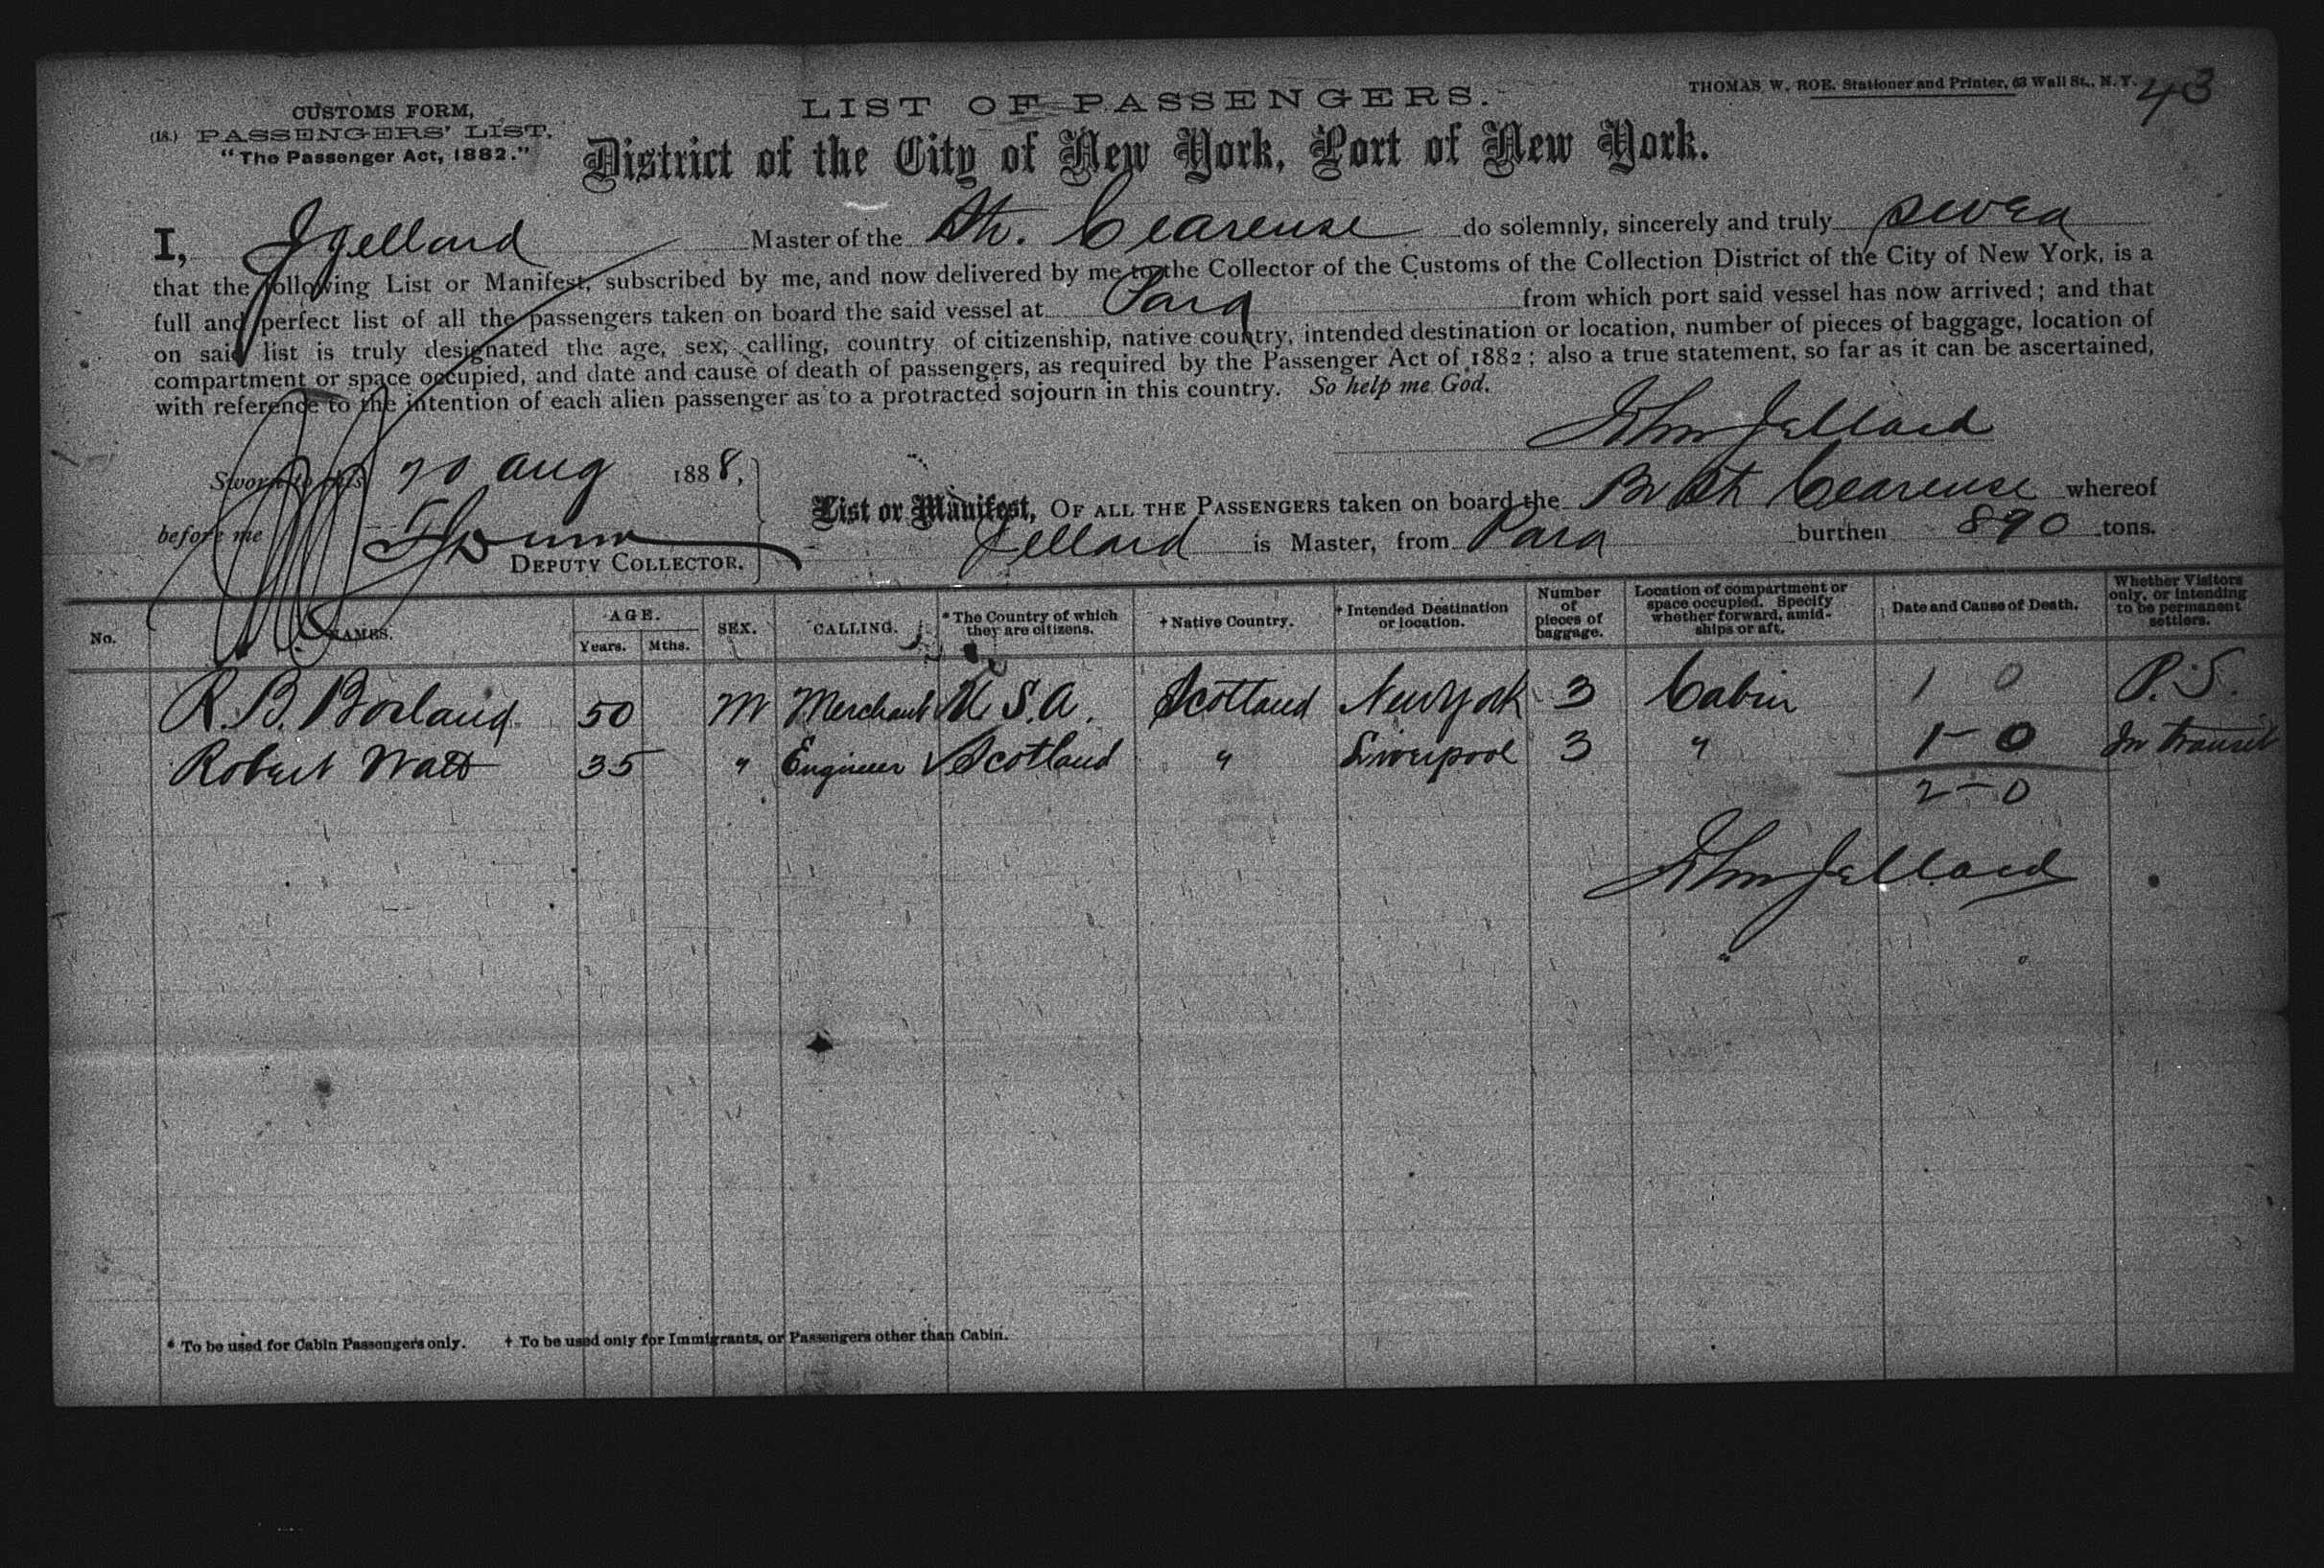 CUSTOMS FORM,
(18.) PASSENGERS' LIST.
"The Passenger Act, 1882."
THOMAS W. ROE, Stationer and Printer, 63 Wall St., N. Y.
43
LIST OF PASSENGERS.
District of the City of New York, Port of New York.
I, J Jellard Master of the Str. Cearense do solemnly, sincerely and truly swear
that the following List or Manifest, subscribed by me, and now delivered by me to the Collector of the Customs of the Collection District of the City of New York, is a
full and perfect list of all the passengers taken on board the said vessel at Para from which port said vessel has now arrived; and that
on said list is truly designated the age, sex, calling, country of citizenship, native country, intended destination or location, number of pieces of baggage, location of
compartment or space occupied, and date and cause of death of passengers, as required by the Passenger Act of 1882; also a true statement, so far as it can be ascertained,
with reference to the intention of each alien passenger as to a protracted sojourn in this country. So help me God.
John Jellard
Sworn to this 20 Aug 1888,
before me
DEPUTY COLLECTOR.
List or Manifest, OF ALL THE PASSENGERS taken on board the Br Str Cearense whereof
Jellard is Master, from Para burthen 890 tons.
No. NAMES. AGE. Years. Mths. SEX. CALLING. * The Country of which they are citizens. † Native Country. † Intended Destination or location. Number of pieces of baggage. Location of compartment or space occupied. Specify whether forward, amidships or aft. Date and Cause of Death. Whether Visitors only, or intending to be permanent settlers.
R. B. Borland 50 M Merchant U.S.A. Scotland New York 3 Cabin 1 0 P.S.
Robert Watt 35 " Engineer Scotland " Liverpool 3 " 1-0 In transit
2-0
John Jellard
* To be used for Cabin Passengers only. † To be used only for Immigrants, or Passengers other than Cabin.